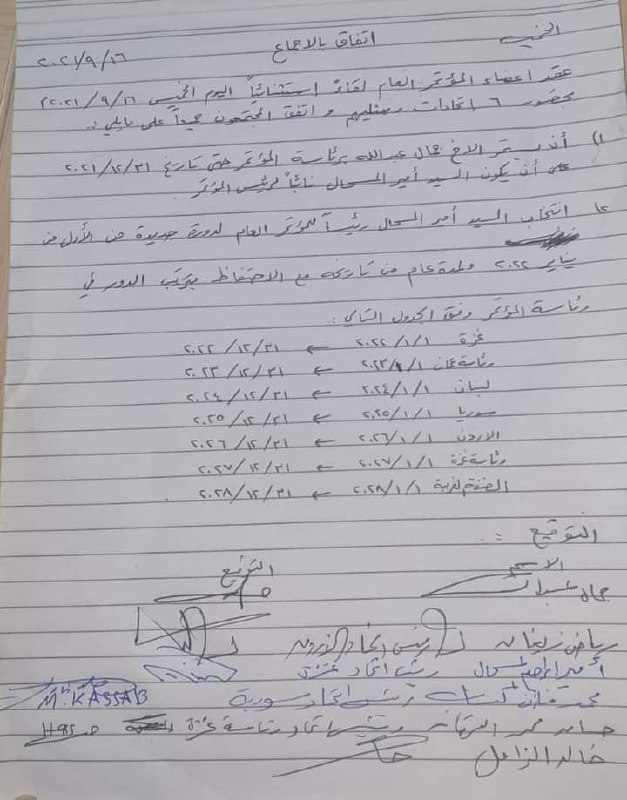 الخميس اتفاق بالاجماع ٢٠٢١/٩/١٦
عقد اعضاء المؤتمر العام لقاءً إستثنائياً اليوم الخميس ٢٠٢١/٩/١٦
بحضور ٦ اتحادات وممثليهم و اتفق المجتمعون جميعاً على مايلي :.
١) أن يستمر الاخ جمال عبدالله برئاسة المؤتمر حتى تاريخ ٢٠٢١/١٢/٣١
على أن يكون السيد أمير المسحال نائباً لرئيس المؤتمر.
٢ انتخاب السيد أمير المسحال رئيساً للمؤتمر العام لدورة جديدة من الأول من
يناير ٢٠٢٢ ولمدة عام من تاريخه مع الاحتفاظ بترتيب الدور في
رئاسة المؤتمر وفق الجدول التالي :
غزة ٢٠٢٢/١/١ ← ٢٠٢٢/١٢/٣١
رئاسة عمان ٢٠٢٣/١/١ ← ٢٠٢٣/١٢/٣١
لبنان ٢٠٢٤/١/١ ← ٢٠٢٤/١٢/٣١
سوريا ٢٠٢٥/١/١ ← ٢٠٢٥/١٢/٣١
الاردن ٢٠٢٦/١/١ ← ٢٠٢٦/١٢/٣١
رئاسة غزة ٢٠٢٧/١/١ ← ٢٠٢٧/١٢/٣١
الضفة الغربية ٢٠٢٨/١/١ ← ٢٠٢٨/١٢/٣١
التوقيع :
الاسم التوقيع
جمال عبدالله
رياض رئيس اتحاد
أمير المسحال رئيس اتحاد غزة
محمد رئيس اتحاد سورية M. KASSAB
محمد رئيس اتحاد رئاسة غزة
خالد الزامل